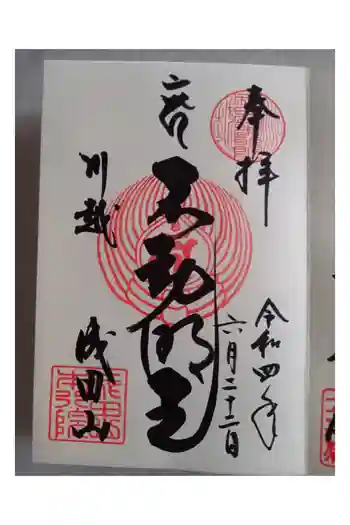 奉拝
令和四年
六月二十二日
不動明王
川越
成田山